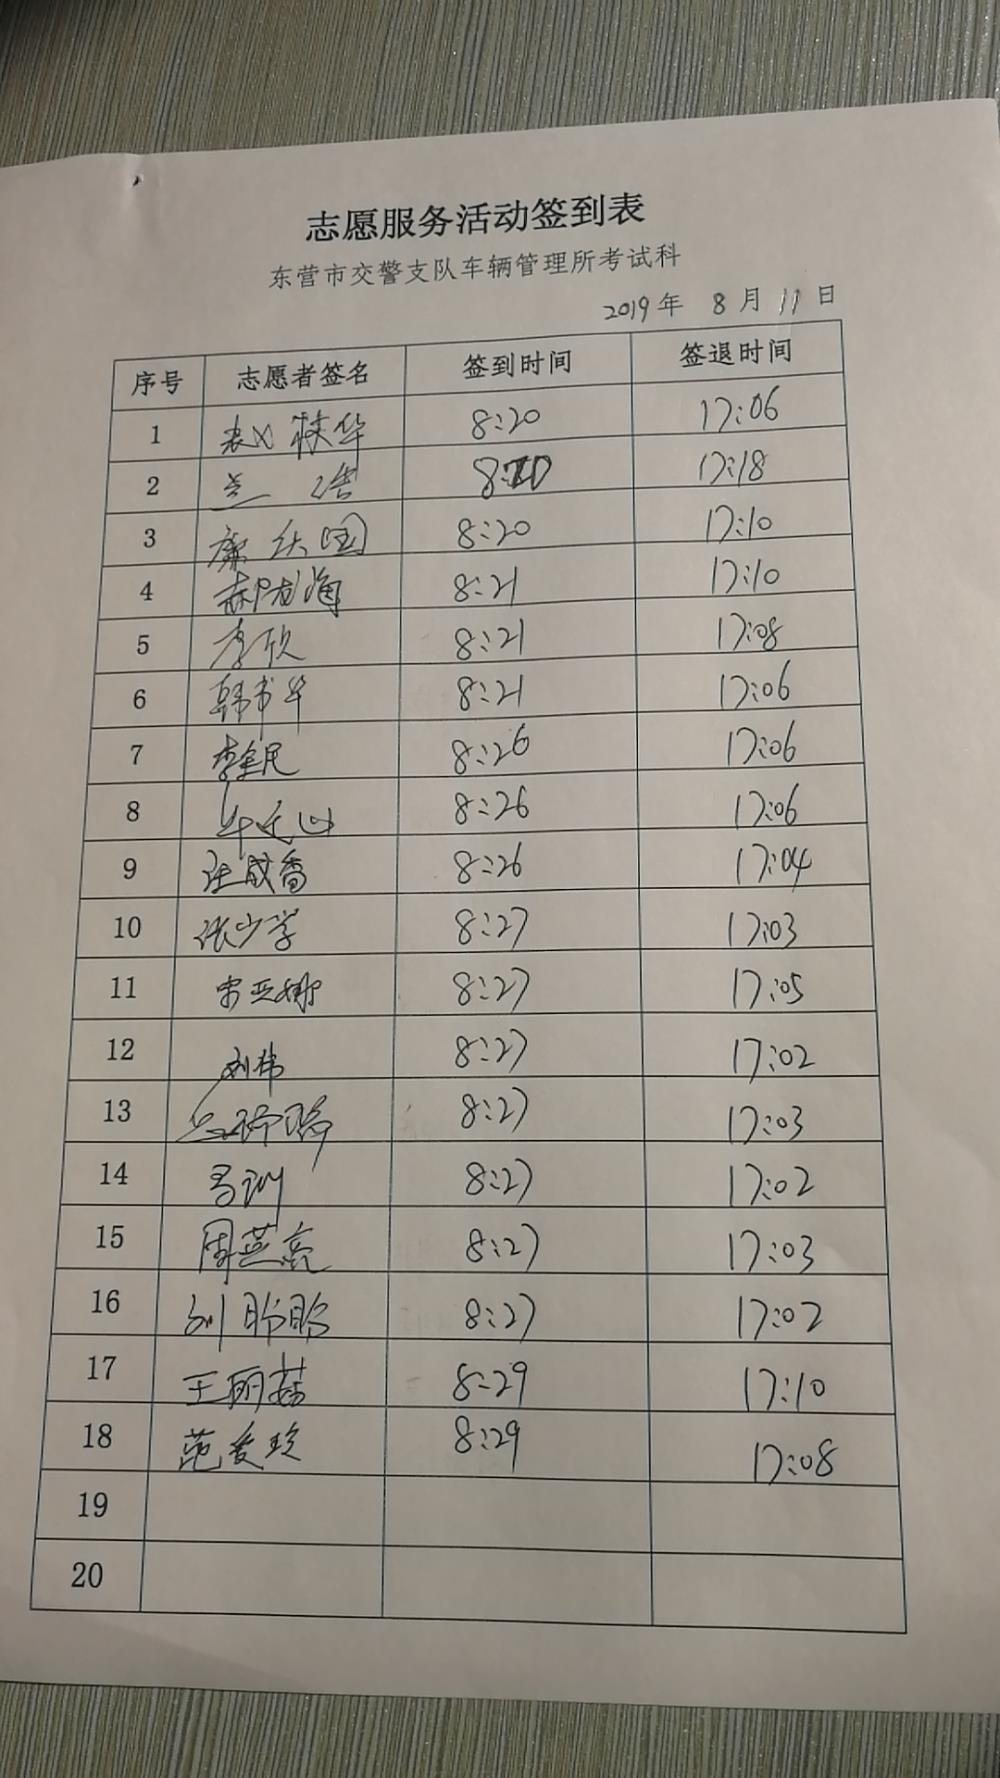 志愿服务活动签到表
东营市交警支队车辆管理所考试科
2019年 8月 11日
序号 志愿者签名 签到时间 签退时间
1 8:20 17:06
2 17:18
3 8:20 17:10
4 8:21 17:10
5 李欣 8:21 17:08
6 韩书华 8:21 17:06
7 李金民 8:26 17:06
8 8:26 17:06
9 8:26 17:04
10 张少学 8:27 17:03
11 宋亚娜 8:27 17:05
12 刘伟 8:27 17:02
13 8:27 17:03
14 8:27 17:02
15 周燕亮 8:27 17:03
16 刘盼盼 8:27 17:02
17 8:29 17:10
18 范爱玲 8:29 17:08
19
20